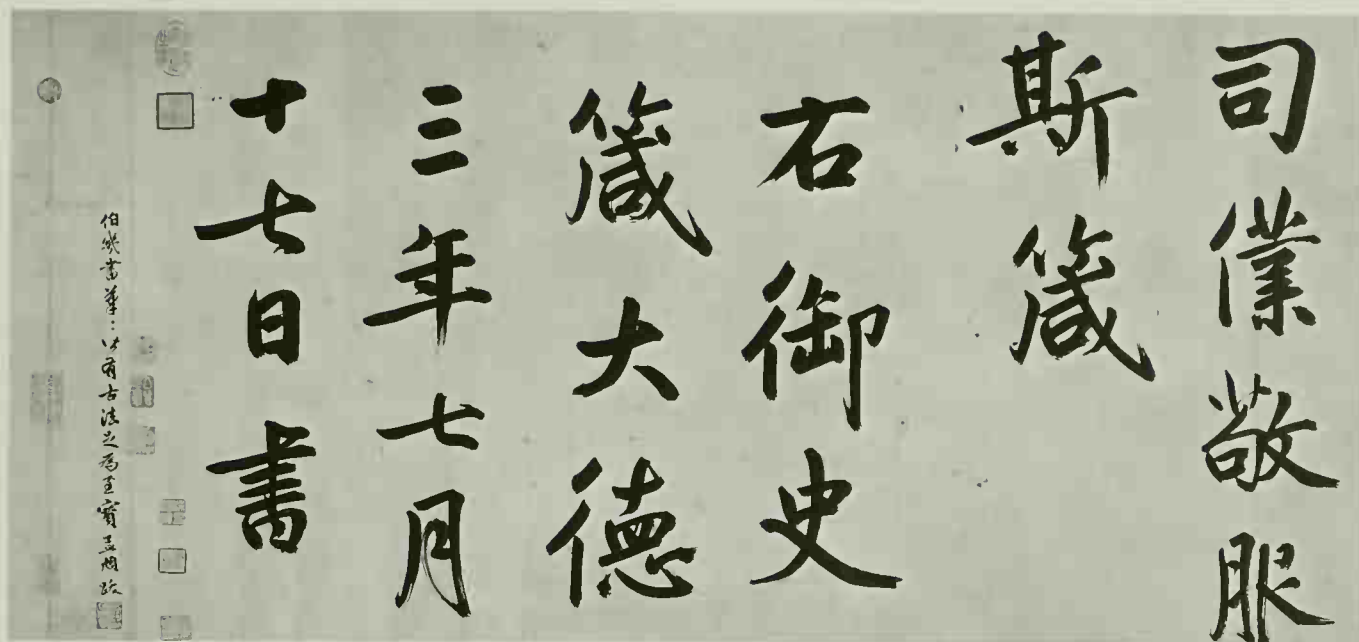 司僕敬服
斯箴
右御史
箴大德
三年七月
十七日書
伯幾書筆〻皆有古法足為至寶孟頫跋